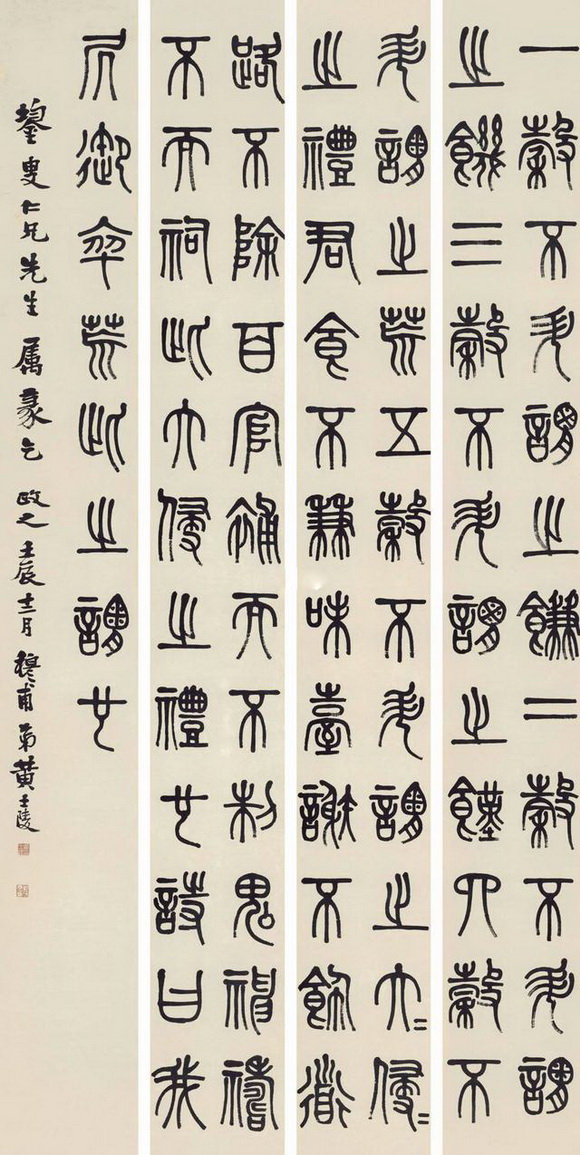 一穀不升謂之䭑二穀不升謂
之饑三穀不升謂之饉四穀不
升謂之荒五穀不升謂之大=侵=
之禮君食不兼味臺謝不飾道
路不除百官補而不制鬼神禱
不而祠此大侵之禮也詩曰我
凥御卒荒此之謂也
叟仁兄先生屬篆乞政之壬辰十二月穆甫弟黃士陵